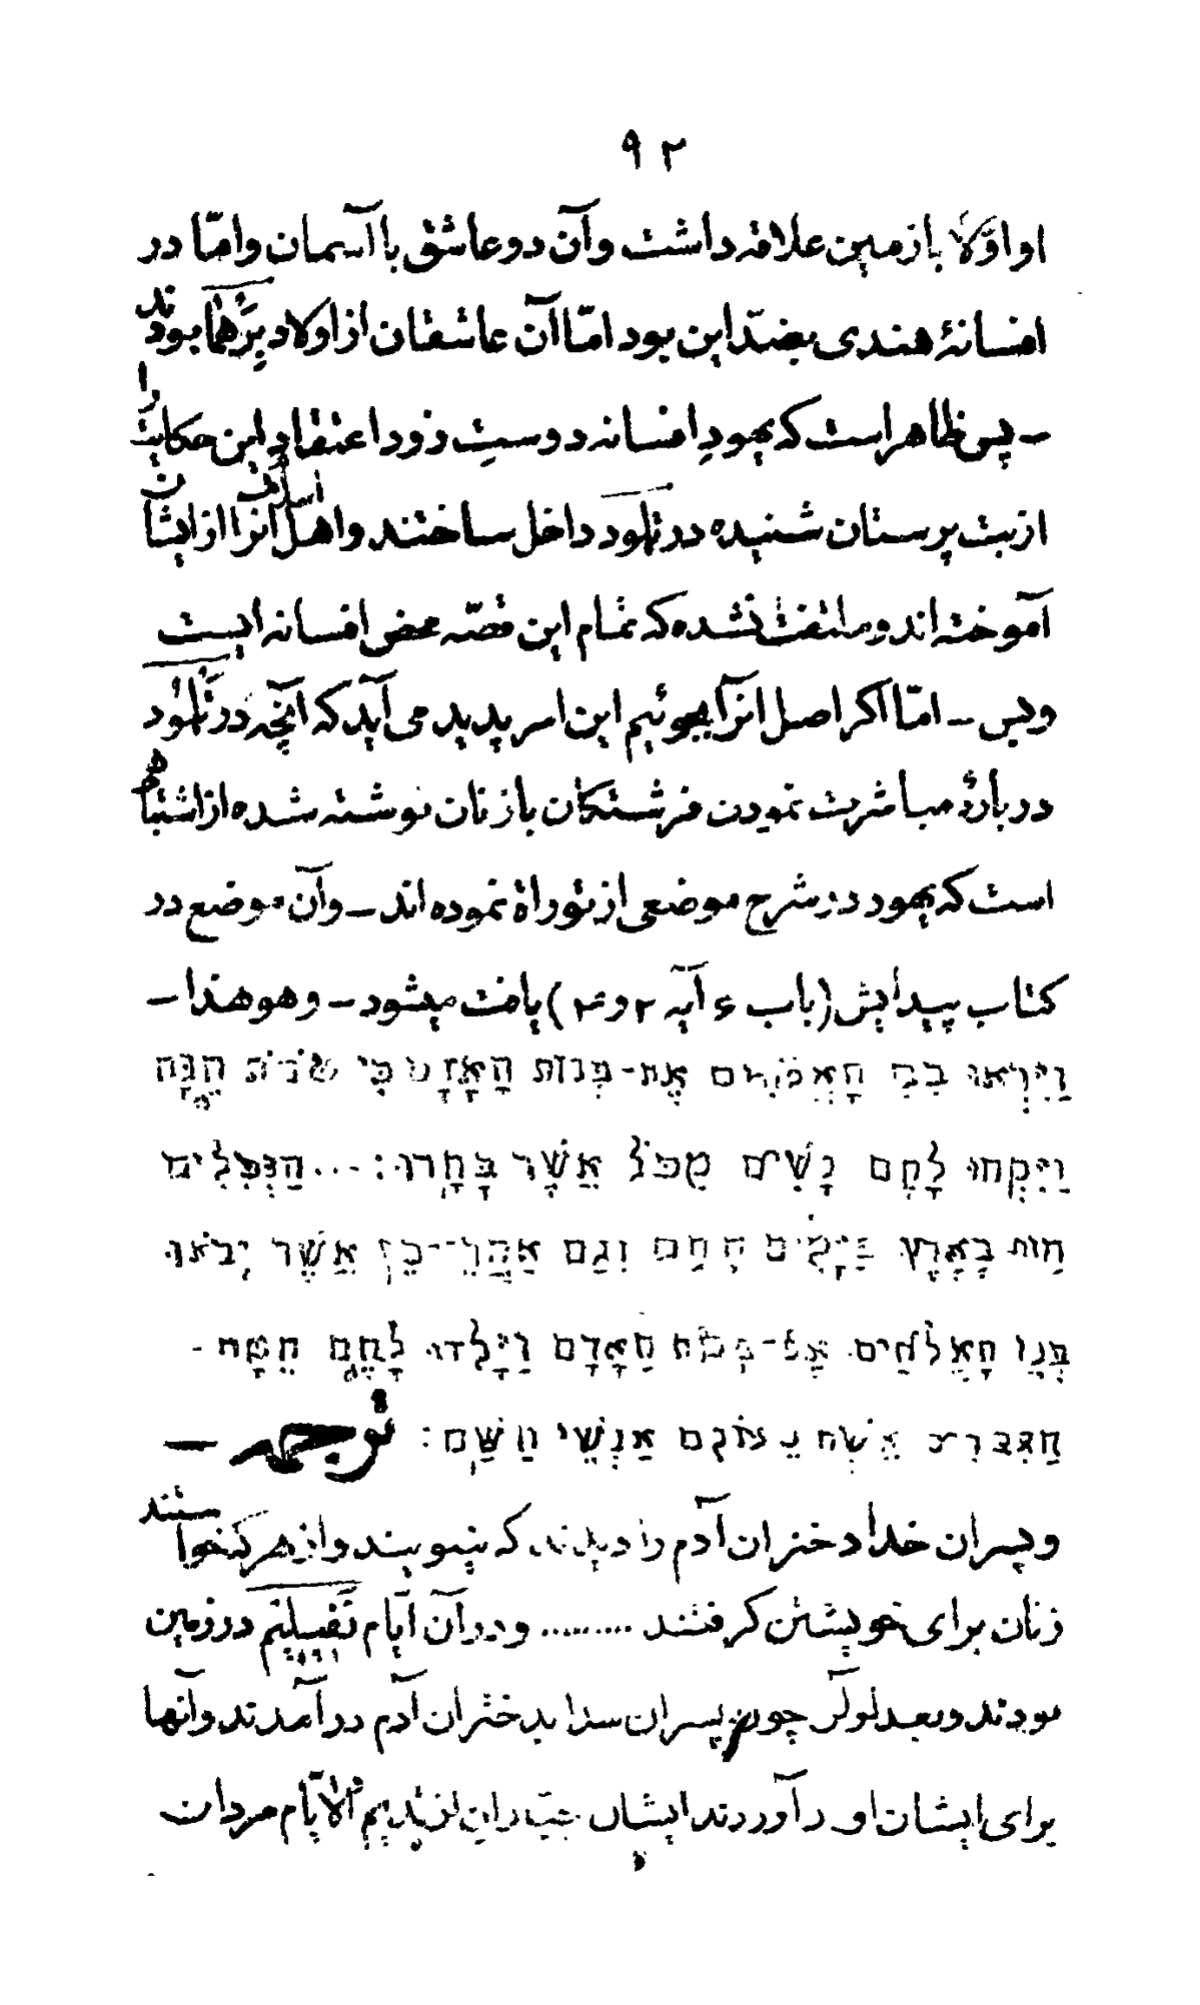 ۹۲
او اوّلاً با زمین علاقه داشت وآن دو عاشق با آسمان وامّا در
افسانهٔ هندی بضدّ این بود امّا آن عاشقان از اولاد بِرَهْما بودند
ـ پس ظاهر است که یهودِ افسانه دوستِ زود اعتقاد این حکایت را
از بت پرستان شنیده در تلمود داخل ساختند واهل اسلام آنرا از ایشان
آموخته اند و ملتفت نشده که تمام این قصّه محض افسانه ایست
وبس ـ امّا اگر اصل آنرا بجوئیم این امر پدید می آید که آنچه در تَلْمُود
در بارهٔ مباشرت نمودن فرشتکان با زنان نوشته شده از اشتباه
است که یهود در شرح موضعی از توراة نموده اند ـ وآن موضع در
کتاب پیدایش (باب ۶ آیه ۲ و ۴) یافت میشود ـ وهو هذا ـ
וַיִּרְאוּ בְנֵי הָאֱלֹהִים אֶת-בְּנוֹת הָאָדָם כִּי טֹבֹת הֵנָּה
וַיִּקְחוּ לָהֶם נָשִׁים מִכֹּל אֲשֶׁר בָּחָרוּ: ... הַנְּפִלִים
הָיוּ בָאָרֶץ בַּיָּמִים הָהֵם וְגַם אַחֲרֵי-כֵן אֲשֶׁר יָבֹאוּ
בְּנֵי הָאֱלֹהִים אֶל-בְּנוֹת הָאָדָם וַיָּלְדוּ לָהֶם הֵמָּה
הַגִּבֹּרִים אֲשֶׁר מֵעוֹלָם אַנְשֵׁי הַשֵּׁם: ترجمه ـ
وپسران خدا دختران آدم را دیدند که نیکویند واز هر که خواستند
زنان برای خویشتن کرفتند ......... ودر آن ایّام نَفِیلِیم در زمین
بودند وبعد از آن چون پسران خدا بدختران آدم در آمدند وآنها
برای ایشان اولاد آوردند ایشان جبّاران از قدیم الایّام مردان